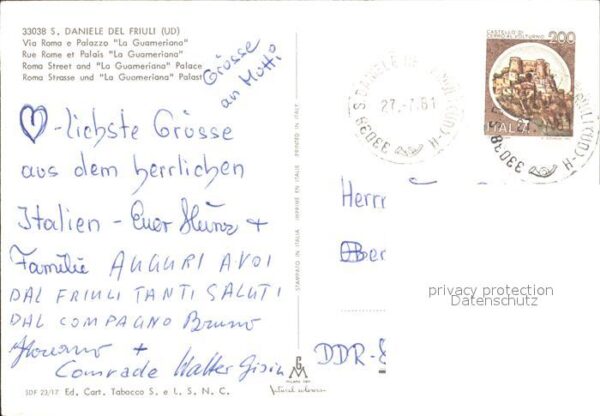 33038 S. DANIELE DEL FRIULI (UD)
Via Roma e Palazzo "La Guarneriana"
Rue Rome et Palais "La Guarneriana"
Roma Street and "La Guarneriana" Palace
Roma Strasse und "La Guarneriana" Palast
Grüsse
an Mutti
♡-lichste Grüsse
aus dem herrlichen
Italien - Euer Heinz +
Familie AUGURI A VOI
DAL FRIULI TANTI SALUTI
DAL COMPAGNO Bruno
+
Comrade Walter
SDF 23/17 Ed. Cart. Tabacco S. e L. S. N. C.
STAMPATO IN ITALIA IMPRIMÉ EN ITALIE PRINTED IN ITALY
CASTELLO DI
CERRO AL VOLTURNO
200
ITALIA
S. DANIELE DEL FRIULI (UD)
27.-7.81
33038
FRIULI (UD)
33038
Herrn
Ober
privacy protection
Datenschutz
DDR-8